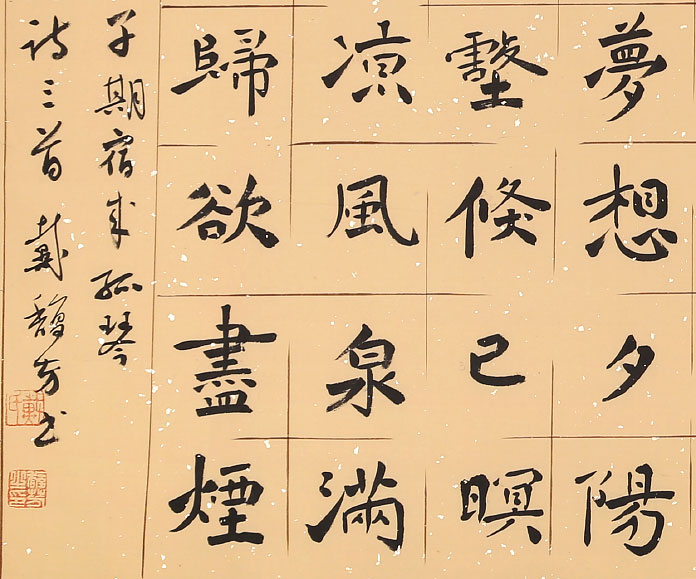 夢想夕陽
壑倐已暝
凉風泉滿
歸欲盡煙
子期宿来孤琴
詩三首 戴馥芳書